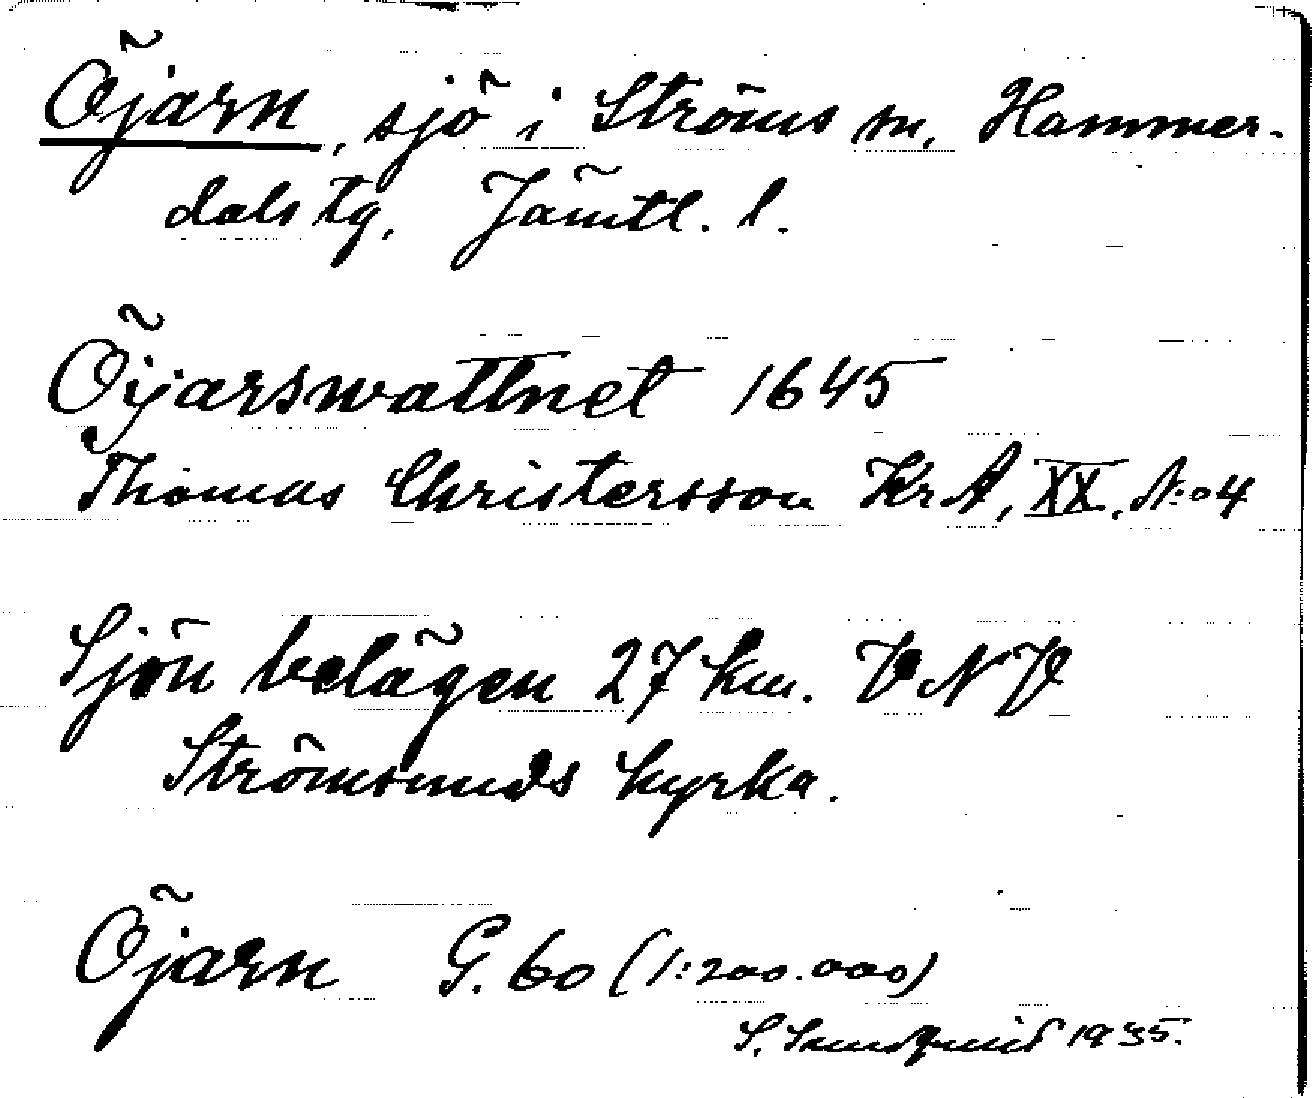 Öjarn, sjö i Ströms sn, Hammer-
dals tg, Jämtl. l.
Öijarswattnet 1645
Thomas Christersson KrA, XX, N:o 4
Sjön belägen 27 km. VNV
Strömsunds kyrka.
Öjarn G. 60 (1:200.000)
S. Sundquist 1935.